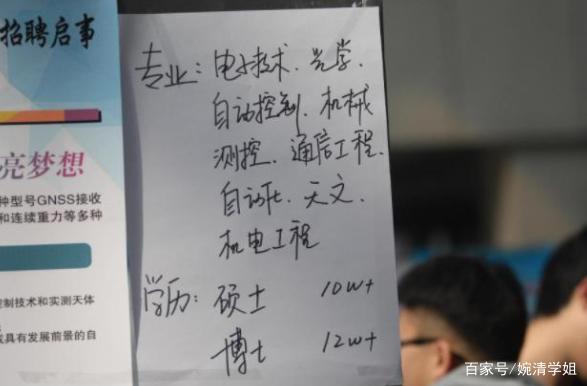 招聘启事
亮梦想
种型号GNSS接收
和连续重力等多种
控制技术和实测天体
或具有发展前景的自
专业：电子技术、光学、
自动控制、机械
测控、通信工程、
自动化、天文、
机电工程
学历：硕士 10W+
博士 12W+
百家号/婉清学姐